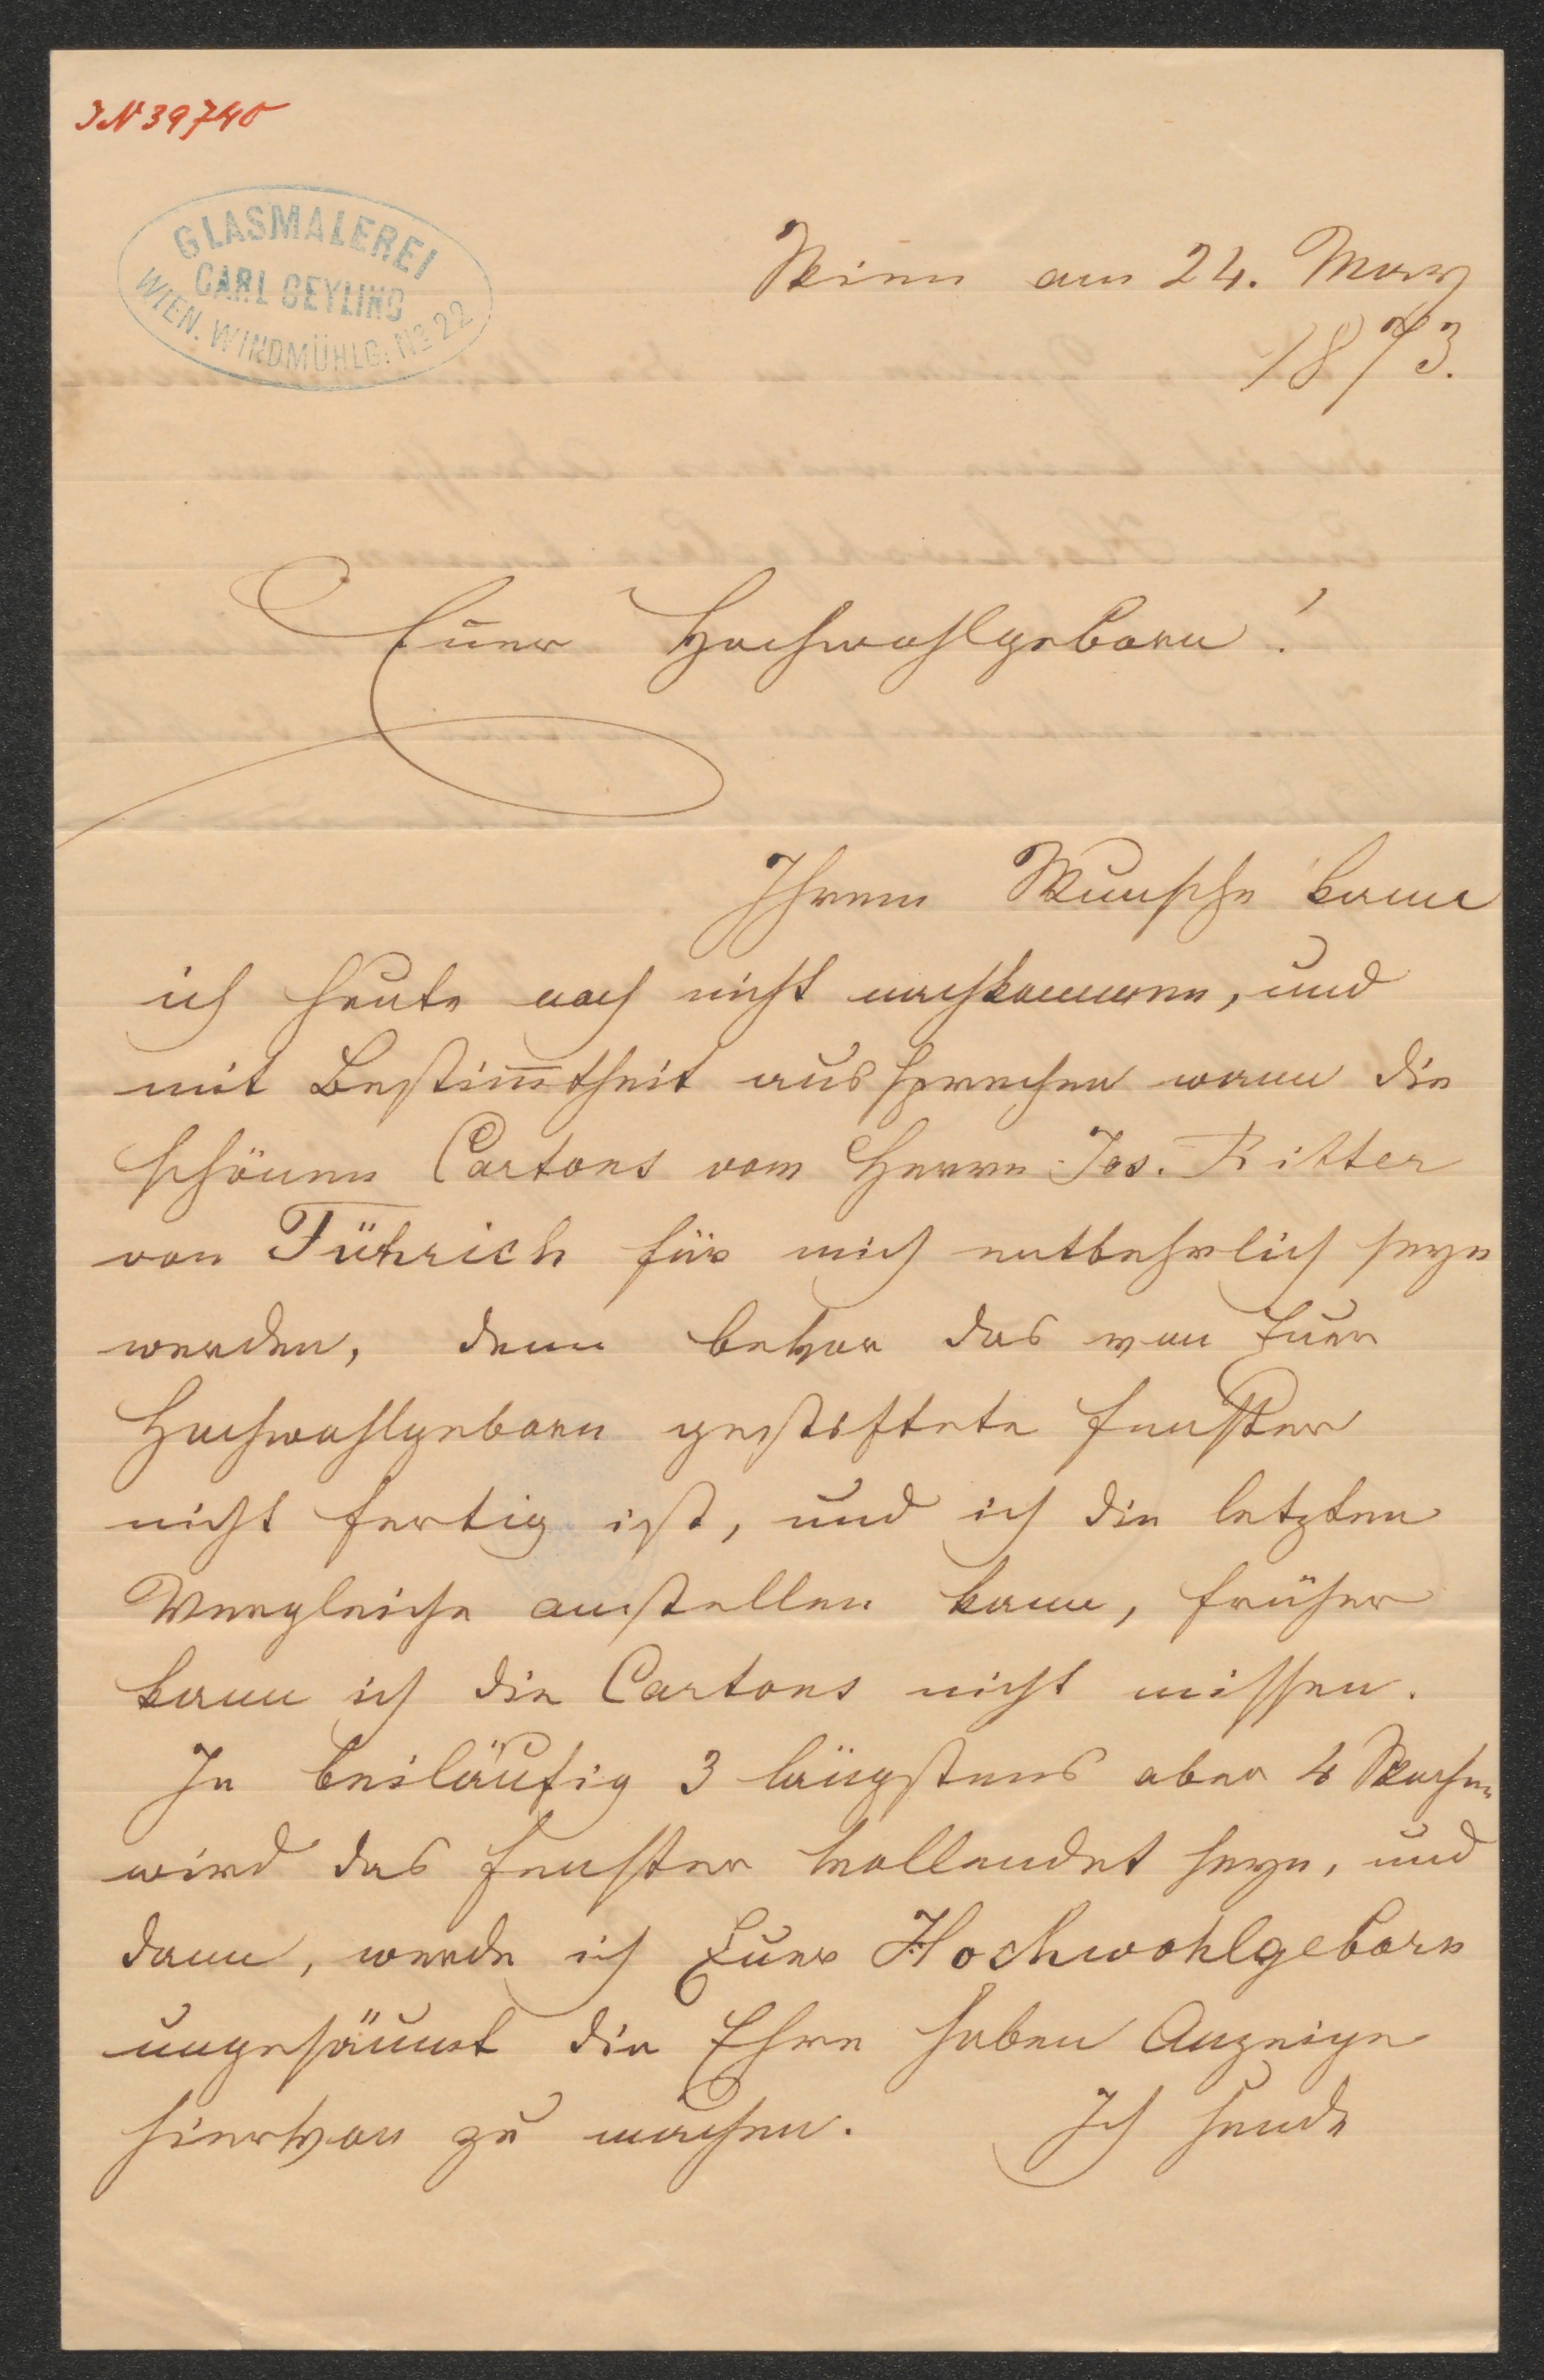 IN 39740
GLASMALEREI
CARL GEYLING
WIEN. WINDMÜHLG. No 22
Wien am 24. März
1873.
Euer Hochwohlgeborn!
Ihrem Wunsche kann
ich heute noch nicht nachkommen, und
mit Bestim̅theit aussprechen wann die
schönen Cartons vom Herrn Jos. Ritter
von Führich für mich entbehrlich seyn
werden, denn bevor das von Euer
Hochwohlgeborn gestiftete Fenster
nicht fertig ist, und ich die letzten
Vergleiche anstellen kann, früher
kann ich die Cartons nicht missen.
In beiläufig 3 längstens aber 4 Wochen
wird das Fenster vollendet seyn, und
dann, werde ich Euer Hochwohlgeborn
ungesäumt die Ehre haben Anzeige
hiervon zu machen. Ich sende